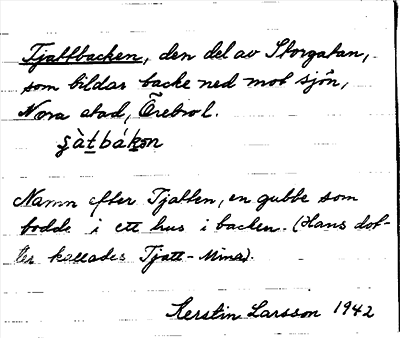 Tjattbacken, den del av Storgatan,
som bildar backe ned mot sjön,
Nora stad, Örebro l.
ʂàtbákən
Namn efter Tjatten, en gubbe som
bodde i ett hus i backen. (Hans dot-
ter kallades Tjatt-Mina).
Kerstin Larsson 1942